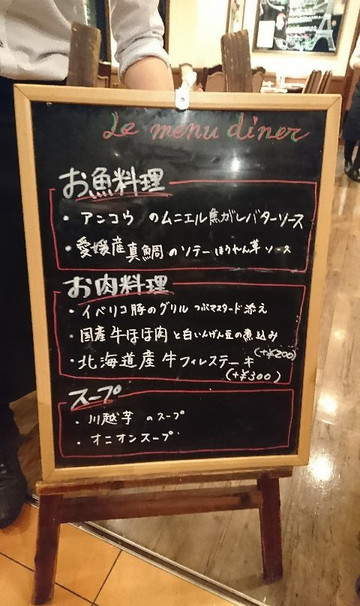 Le menu dîner
お魚料理
・アンコウ のムニエル焦がしバターソース
・愛媛産真鯛のソテーほうれん草ソース
お肉料理
・イベリコ豚のグリル つぶマスタード添え
・国産牛ほほ肉と白いんげん豆の煮込み
(+¥200)
・北海道産牛フィレステーキ
(+¥300)
スープ
・川越芋 のスープ
・オニオンスープ